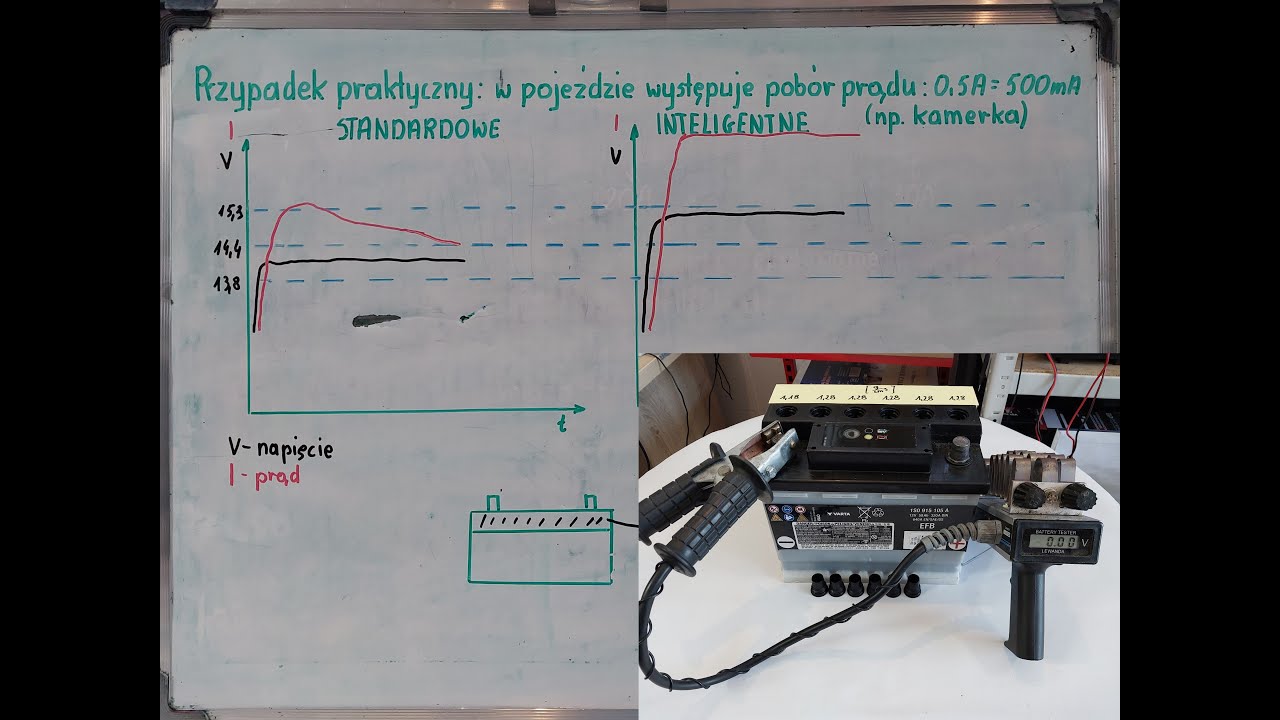 Przypadek praktyczny: w pojeździe występuje pobór prądu: 0.5A = 500mA
(np. kamerka)
I
STANDARDOWE
V
15,3
14,4
13,8
t
I
INTELIGENTNE
V
V - napięcie
I - prąd
1,18 1,28 1,28 1,28 1,28 1,28
VARTA
1S0 915 105 A
EFB
BATTERY TESTER
0.00 V
LEWANDA